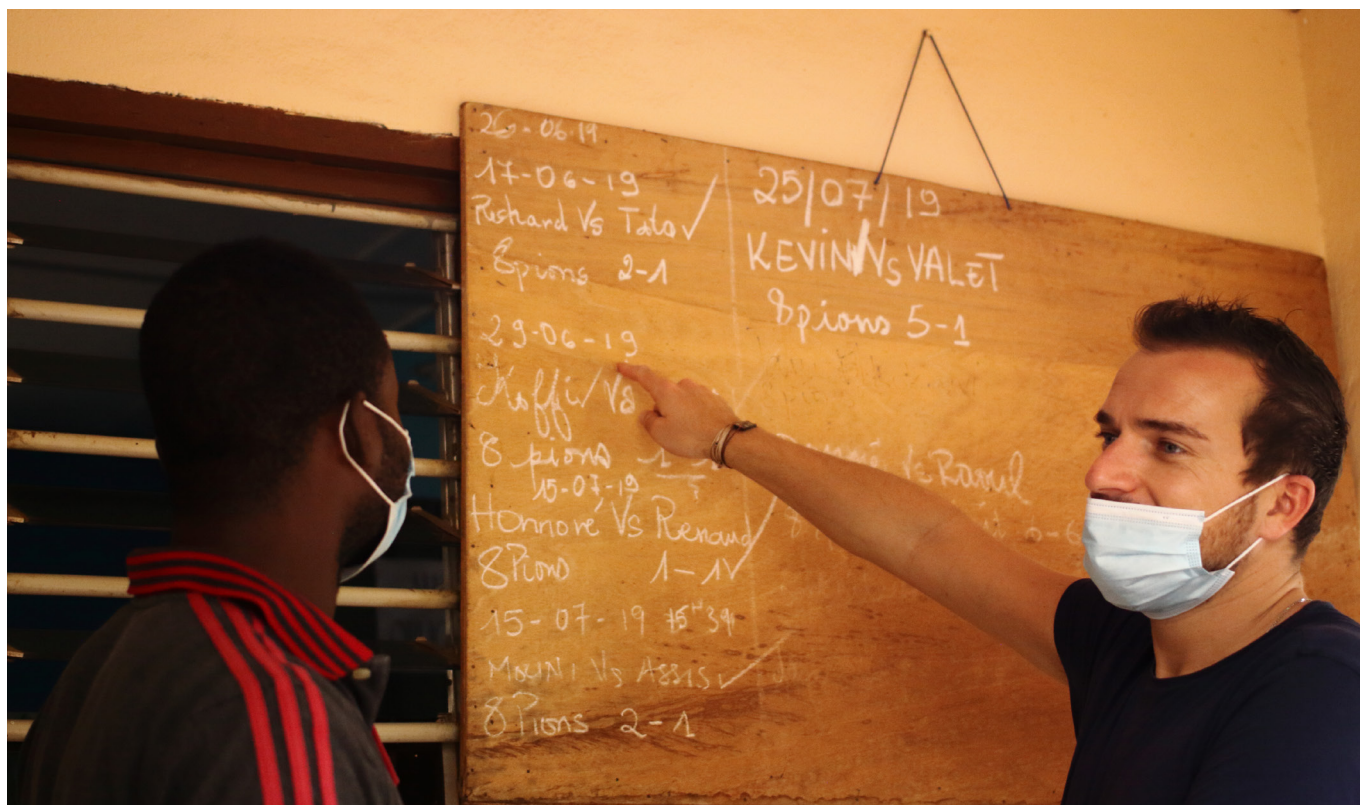 26-06-19
17-06-19
Richard Vs Tato
8pions 2-1
29-06-19
Koffi Vs
8 pions 1-1
15-07-19
Honnoré Vs Renaud
8 Pions 1-1
15-07-19 15H39
Vs ASSIS
8 Pions 2-1
25/07/19
KEVIN Vs VALET
8pions 5-1
Vs Raoul
0-6